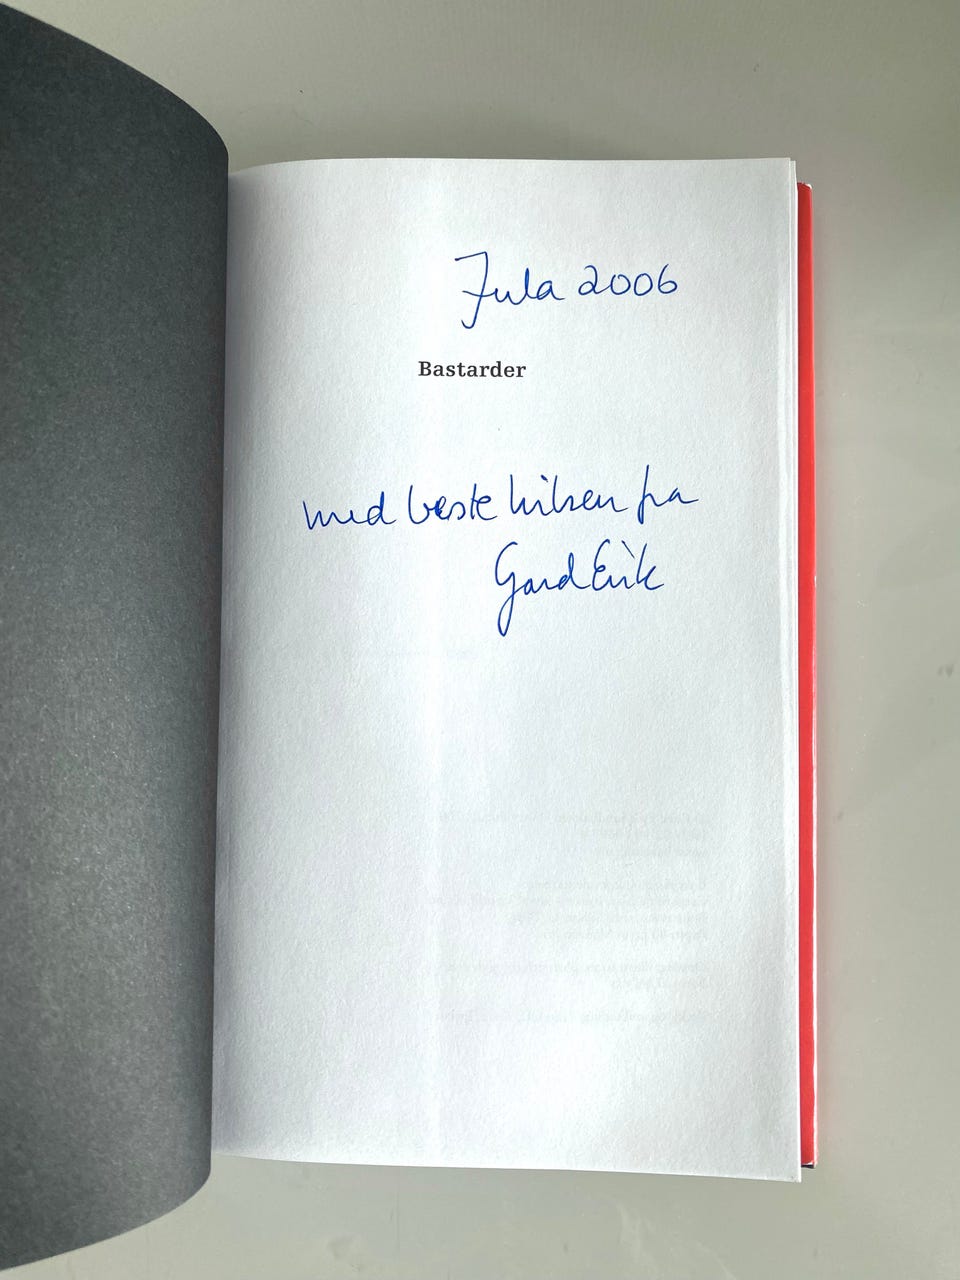 Jula 2006
Bastarder
med beste hilsen fra
Gard Erik